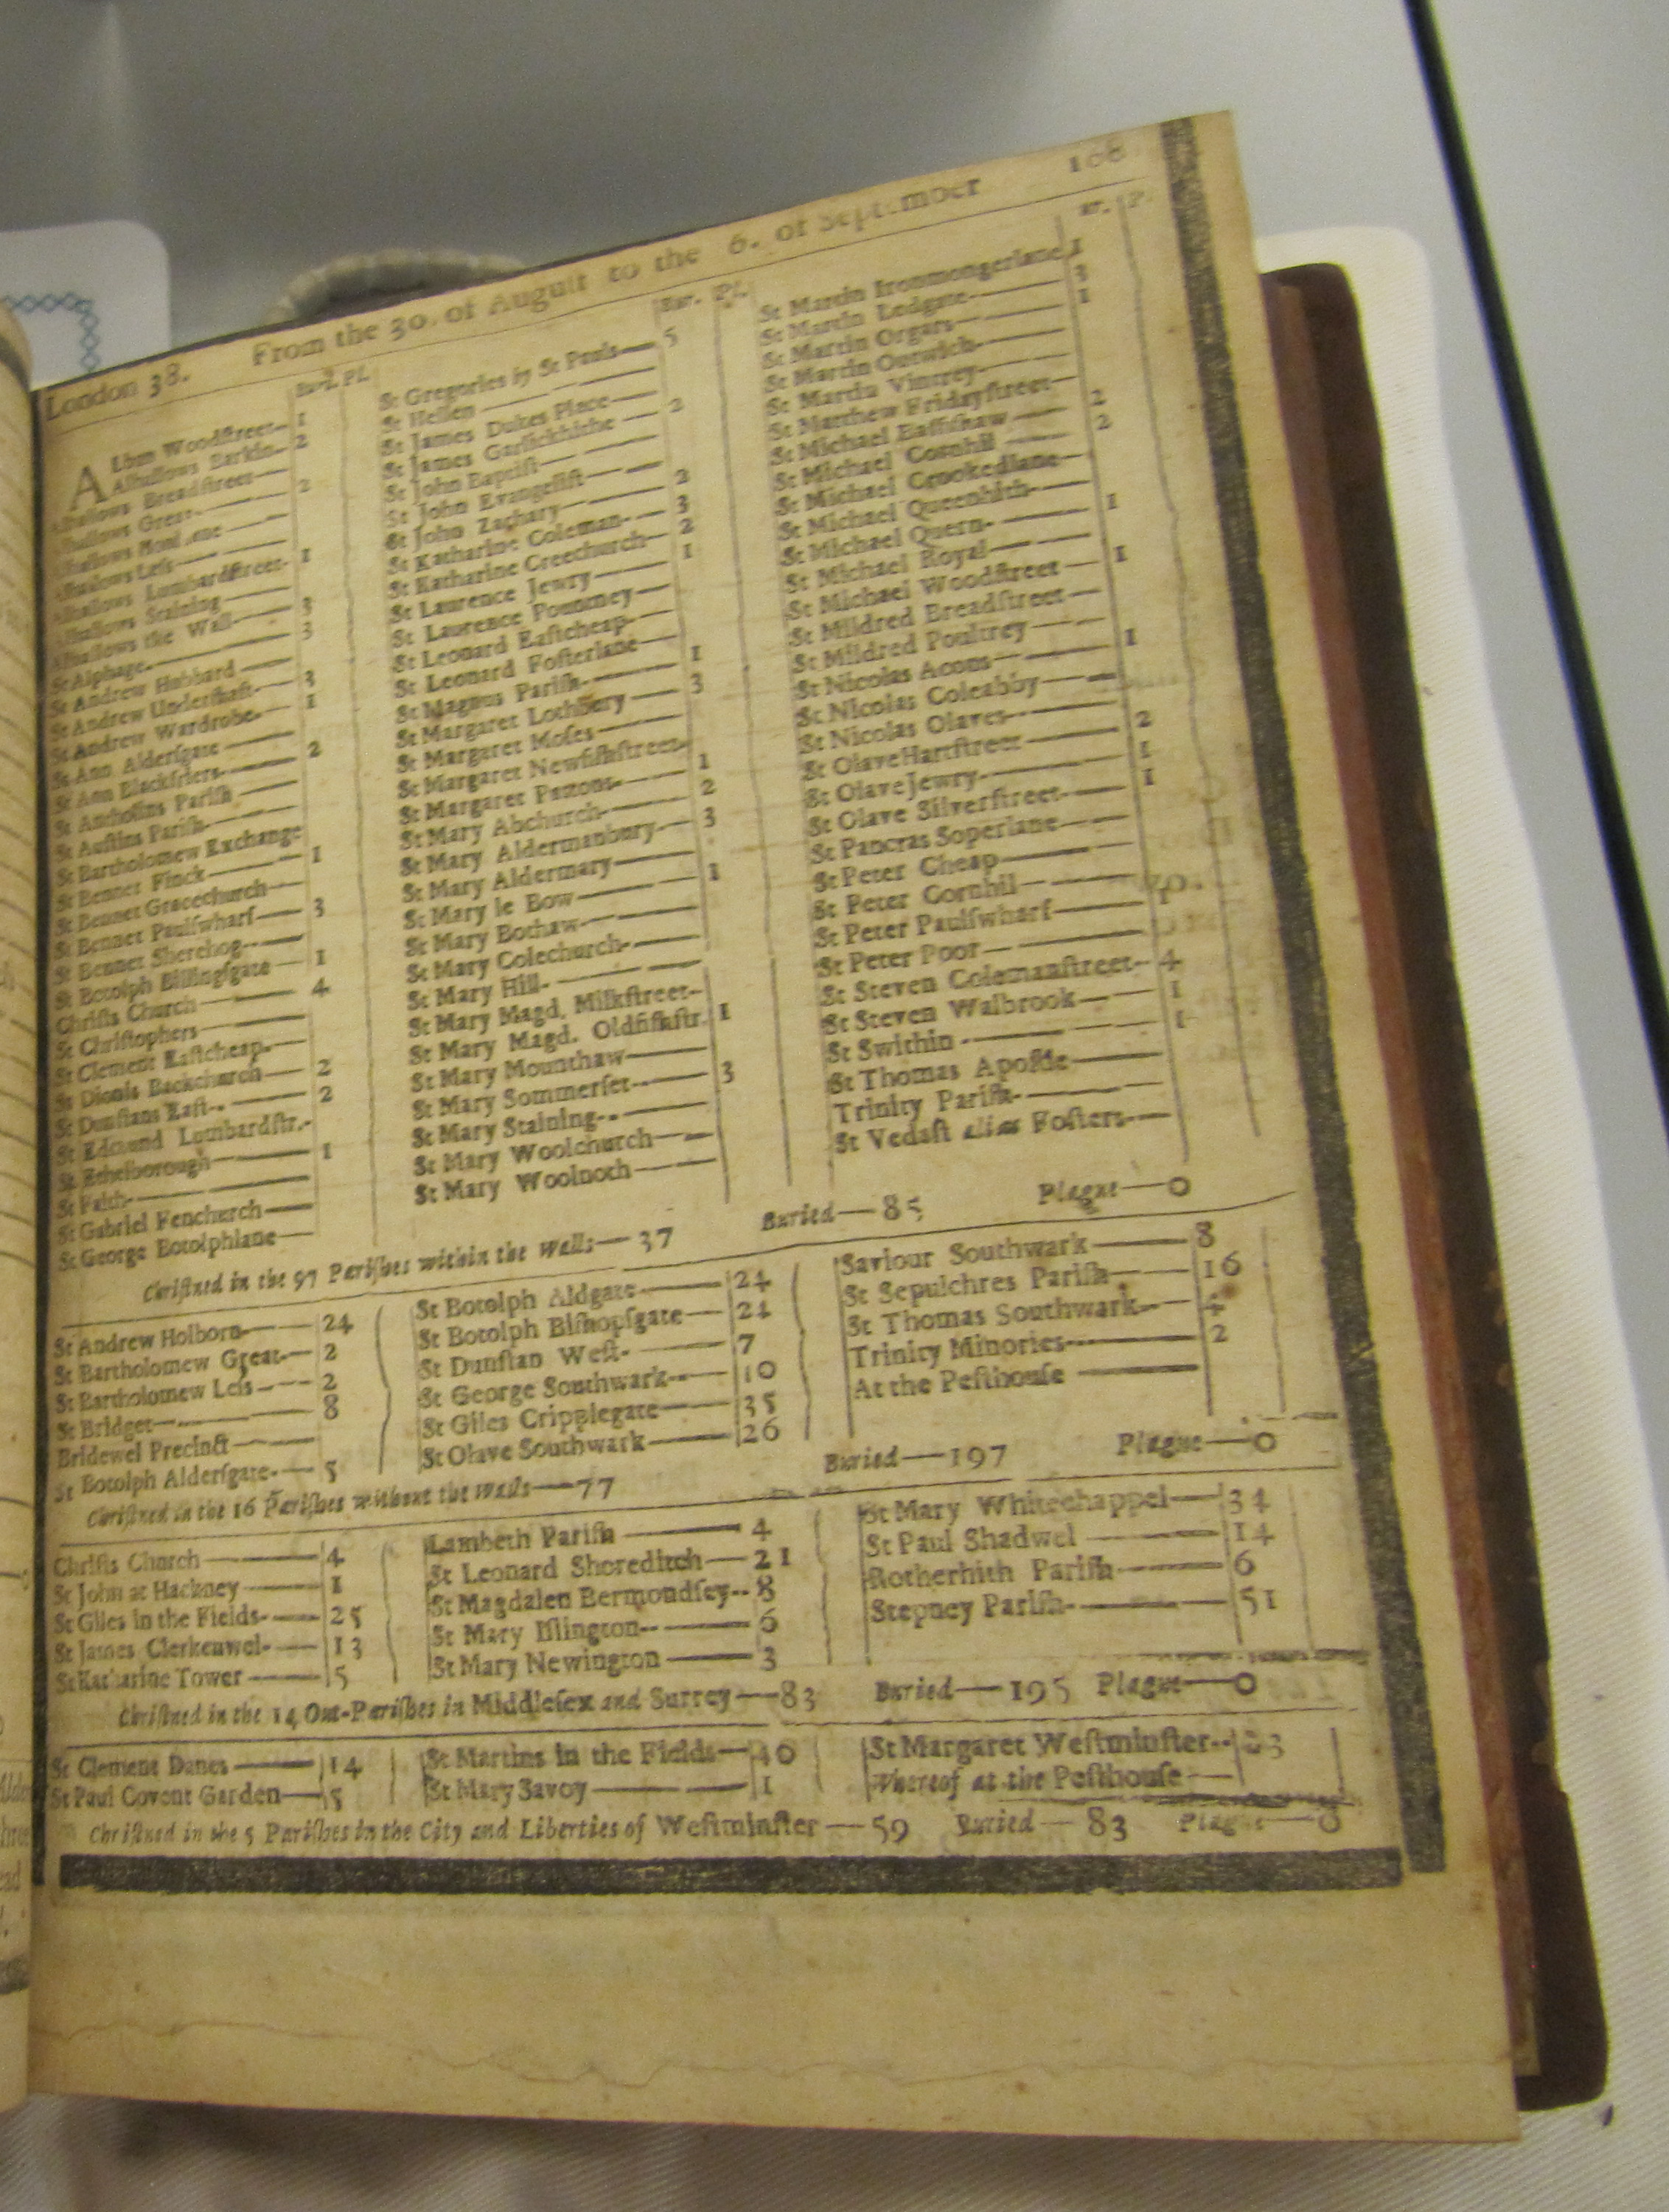 London 38. From the 30. of Auguſt to the 6. of September
Bur. Pl.
ALban Woodſtreet— 1
Alhallows Barkin— 2
Alhallows Breadſtreet—
Alhallows Great— 2
Alhallows
Alhallows Leſs—
Alhallows Lumbardſtreet- 1
Alhallows Staining—
Alhallows the Wall— 3
St Alphage— 3
St Andrew Hubbard—
St Andrew Underſhaft— 3
St Andrew Wardrobe— 1
St Ann Alderſgate—
St Ann Blackfriers— 2
St Antholins Pariſh—
St Auſtins Pariſh—
St Bartholomew Exchange
St Bennet Finck— 1
St Bennet Gracechurch—
St Bennet Paulſwharf— 3
St Bennet Sherehog—
St Botolph Billingſgate— 1
Chriſts Church— 4
St Chriſtophers—
St Clement Eaſtcheap—
St Dionis Backchurch— 2
St Dunſtans Eaſt— 2
St Edmund Lumbardſtr.-
St Ethelborough— 1
St Faith—
St Gabriel Fenchurch—
St George Botolphlane—
Bur. Pl.
St Gregories by St Pauls— 5
St Hellen—
St James Dukes Place—
St James Garlickhithe— 2
St John Baptiſt—
St John Evangeliſt—
St John Zachary— 2
St Katharine Coleman— 3
St Katharine Creechurch— 2
St Laurence Jewry— 1
St Laurence Pountney—
St Leonard Eaſtcheap—
St Leonard Foſterlane—
St Magnus Pariſh— 1
St Margaret Lothbury— 3
St Margaret Moſes—
St Margaret Newfiſhſtreet-
St Margaret Pattons— 1
St Mary Abchurch— 2
St Mary Aldermanbury— 3
St Mary Aldermary—
St Mary le Bow— 1
St Mary Bothaw—
St Mary Colechurch—
St Mary Hill—
St Mary Magd. Milkſtreet-
St Mary Magd. Oldfiſhſtr. 1
St Mary Mounthaw—
St Mary Sommerſet— 3
St Mary Staining—
St Mary Woolchurch—
St Mary Woolnoth—
St Martin Ironmongerlane 1
St Martin Ludgate— 3
St Martin Orgars— 1
St Martin Outwich—
St Martin Vintrey—
St Matthew Fridayſtreet—
St Michael Baſſiſhaw— 2
St Michael Cornhil— 2
St Michael Crookedlane—
St Michael Queenhith—
St Michael Quern— 1
St Michael Royal—
St Michael Woodſtreet— 1
St Mildred Breadſtreet—
St Mildred Poultrey—
St Nicolas Acons— 1
St Nicolas Coleabby—
St Nicolas Olaves—
St Olave Hartſtreet— 2
St Olave Jewry— 1
St Olave Silverſtreet— 1
St Pancras Soperlane—
St Peter Cheap—
St Peter Cornhil—
St Peter Paulſwharf— 1
St Peter Poor—
St Steven Colemanſtreet- 4
St Steven Walbrook— 1
St Swithin— 1
St Thomas Apoſtle—
Trinity Pariſh—
St Vedaſt alias Foſters—
Chriſtned in the 97 Pariſhes within the Walls—37 Buried—85 Plague—0
St Andrew Holborn— 24
St Bartholomew Great— 2
St Bartholomew Leſs— 2
St Bridget— 8
Bridewel Precinct—
St Botolph Alderſgate— 5
St Botolph Aldgate— 24
St Botolph Biſhopſgate— 24
St Dunſtan Weſt— 7
St George Southwark— 10
St Giles Cripplegate— 35
St Olave Southwark— 26
Saviour Southwark— 8
St Sepulchres Pariſh— 16
St Thomas Southwark— 4
Trinity Minories— 2
At the Peſthouſe—
Chriſtned in the 16 Pariſhes without the Walls—77 Buried—197 Plague—0
Chriſts Church— 4
St John at Hackney— 1
St Giles in the Fields— 25
St James Clerkenwel— 13
St Katharine Tower— 5
Lambeth Pariſh— 4
St Leonard Shoreditch— 21
St Magdalen Bermondſey— 8
St Mary Iſlington— 6
St Mary Newington— 3
St Mary Whitechappel— 34
St Paul Shadwel— 14
Rotherhith Pariſh— 6
Stepney Pariſh— 51
Chriſtned in the 14 Out-Pariſhes in Middleſex and Surrey—83 Buried—195 Plague—0
St Clement Danes— 14
St Paul Covent Garden— 5
St Martins in the Fields— 40
St Mary Savoy— 1
St Margaret Weſtminſter— 23
Whereof at the Peſthouſe—
Chriſtned in the 5 Pariſhes in the City and Liberties of Weſtminſter—59 Buried—83 Plague—0